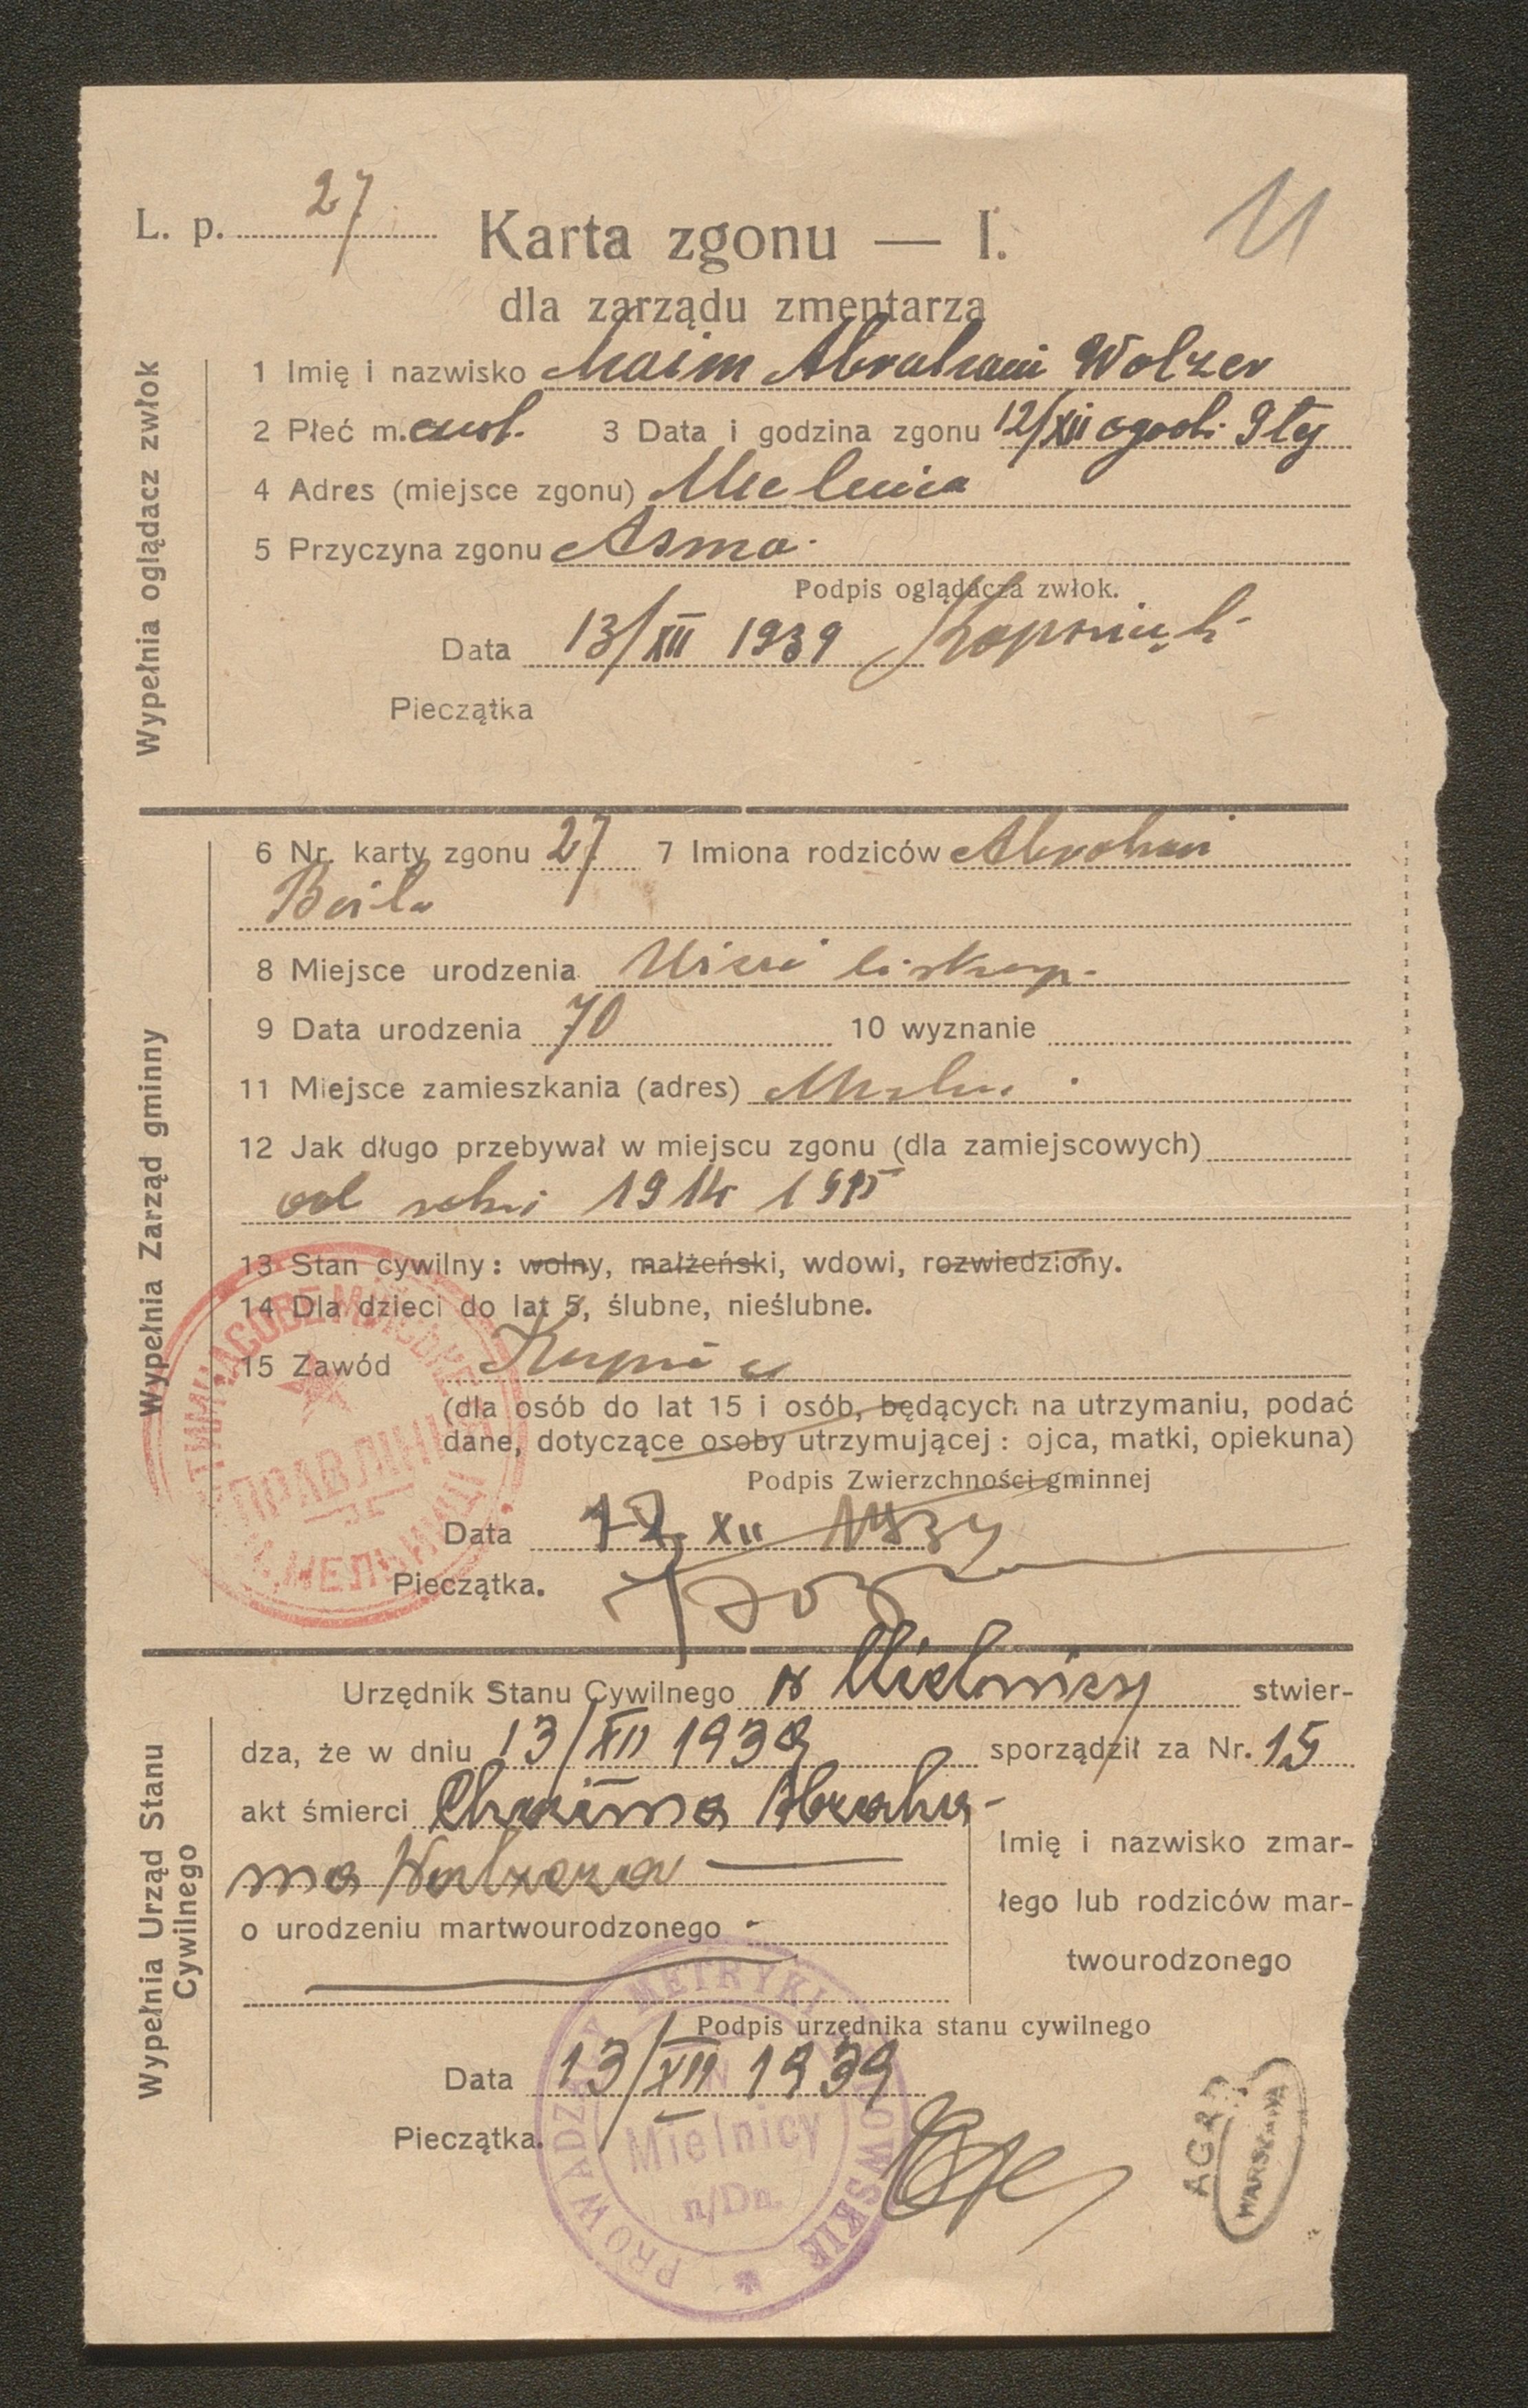 L. p. 27
Karta zgonu — I.
11
dla zarządu zmentarza
Wypełnia oglądacz zwłok
1 Imię i nazwisko Chaim Abraham Wolzer
2 Płeć m. 3 Data i godzina zgonu 12/XII o godz. 9tej
4 Adres (miejsce zgonu) Mielnica
5 Przyczyna zgonu Asma.
Podpis oglądacza zwłok.
Data 13/XII 1939
Pieczątka
Wypełnia Zarząd gminny
6 Nr. karty zgonu 27 7 Imiona rodziców Abraham
Beila
8 Miejsce urodzenia
9 Data urodzenia 70 10 wyznanie
11 Miejsce zamieszkania (adres)
12 Jak długo przebywał w miejscu zgonu (dla zamiejscowych)
od roku 1914
13 Stan cywilny: wolny, małżeński, wdowi, rozwiedziony.
14 Dla dzieci do lat 5, ślubne, nieślubne.
15 Zawód
(dla osób do lat 15 i osób, będących na utrzymaniu, podać
dane, dotyczące osoby utrzymującej: ojca, matki, opiekuna)
Podpis Zwierzchności gminnej
Data XII 1939
Pieczątka.
ТИМЧАСОВЕ МІЙСЬКЕ
УПРАВЛІННЯ
МЕЛЬНИЦІ
Wypełnia Urząd Stanu
Cywilnego
Urzędnik Stanu Cywilnego w Mielnicy stwier-
dza, że w dniu 13/XII 1939 sporządził za Nr. 15
akt śmierci Chaima Abraha-
ma Wolzera
Imię i nazwisko zmar-
łego lub rodziców mar-
twourodzonego
o urodzeniu martwourodzonego
Podpis urzędnika stanu cywilnego
Data 13/XII 1939
Pieczątka.
PROWADZĄCY METRYKI
Mielnicy
n/Dn.
AGAD
WARSZAWA